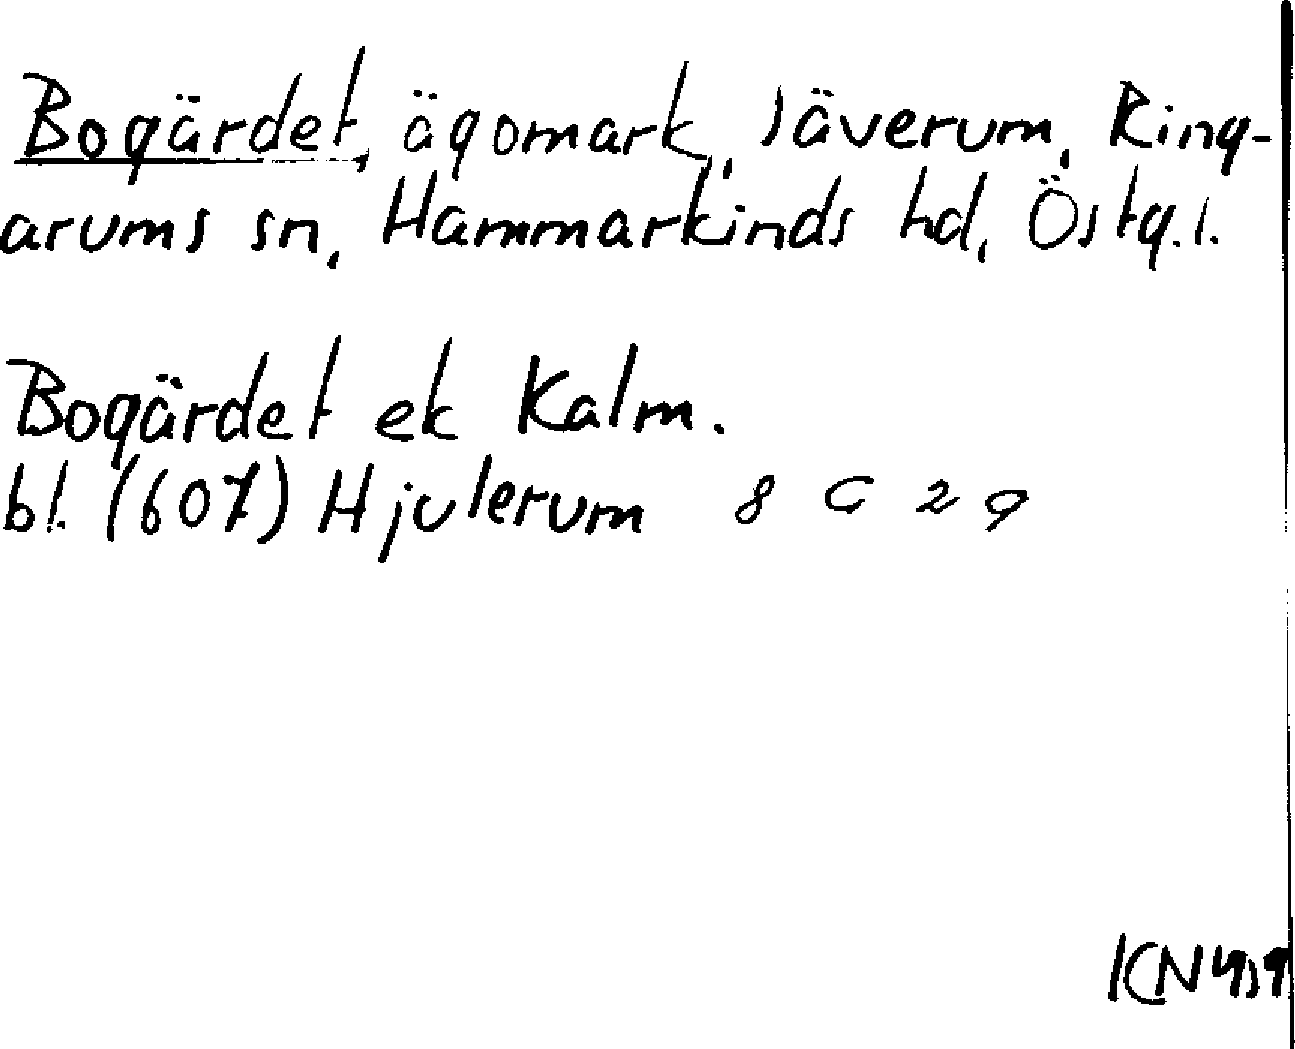 Bogärdet, ägomark, Säverum, Ring-
arums sn, Hammarkinds hd, Östg.l.
Bogärdet ek Kalm.
bl. (607) Hjulerum 8 G 2 9